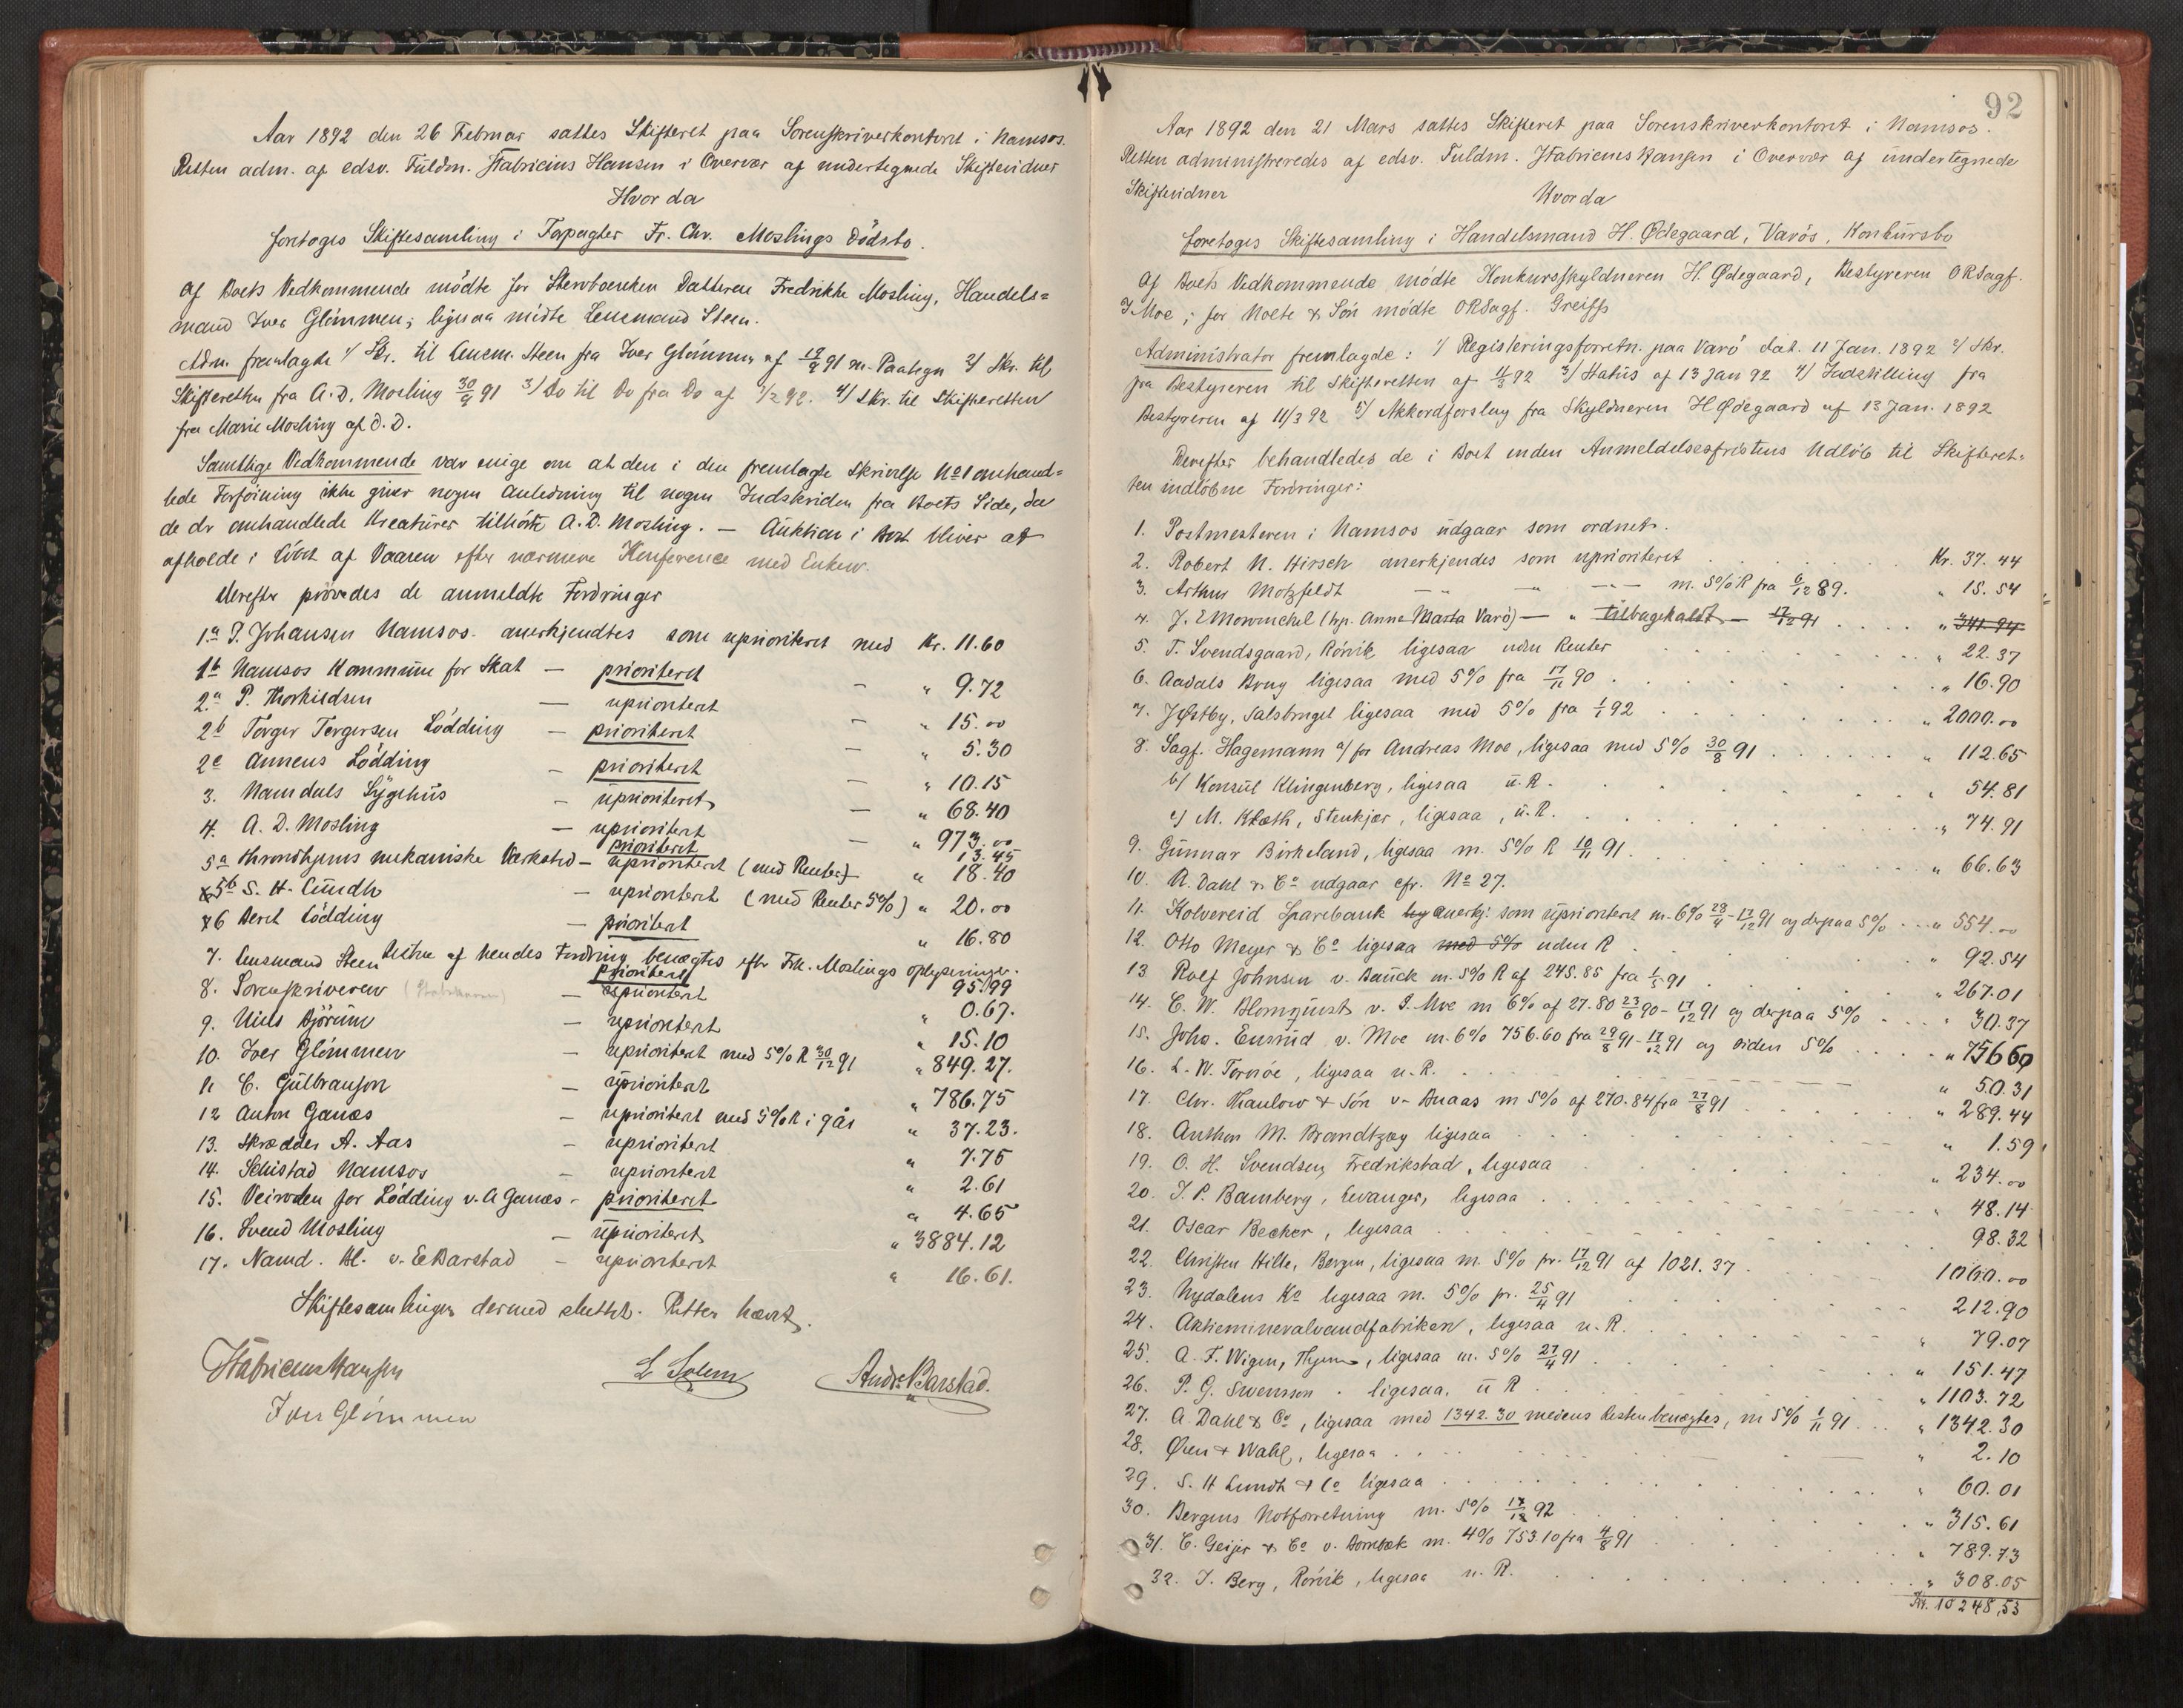 Aar 1892 den 26 Februar sattes Skifteret paa Sorenskriverkontoret i Namsos.
Retten adm. af edsv. Fuldm. Fabricius Hansen i Overvær af undertegnede Skiftevidner
Hvorda
foretoges Skiftesamling i Forpagter Fr. Chr. Moslings Dödsbo.
Af Boets Vedkommende mödte for Stervboenken Datteren Fredrikke Mosling, Handels=
mand Iver Glömmen; ligesaa mödte Lensmand Steen.
Adm. fremlagde 1/ Skr. til Lensm. Steen fra Iver Glömmen af 17/9 91 m. Paategn 2/ Skr. til
Skifteretten fra A. D. Mosling 30/9 91 3/ Do til Do fra Do af 1/2 92. 4/ Skr. til Skifteretten
fra Marie Mosling af d. D.
Samtlige Vedkommende var enige om at den i den fremlagte Skrivelse No 1 omhand=
lede Forföining ikke giver nogen Anledning til nogen Indskriden fra Boets Side, da
de der omhandlede Kreaturer tilhörte A. D. Mosling. — Auktion i Boet bliver at
afholde i Löbet af Vaaren efter nærmere Konference med Enken.
Derefter prövedes de anmeldte Fordringer
1a P. Johansen Namsos. anerkjendtes som uprioriteret med Kr. 11.60
1b Namsos Kommune for Skat — prioriteret — " 9.72
2a P. Thorkildsen — uprioriteret — " 15.00
2b Torger Torgersen Lödding — prioriteret — " 5.30
2c Anneus Lödding — prioriteret — " 10.15
3. Namdals Sygehus — uprioriteret — " 68.40
4. A. D. Mosling — uprioriteret — " 973.00
prioriteret 13.45
5a Throndhjems mekaniske Værksted — uprioriteret (med Renter) " 18.40
5b S. H. Lundh — uprioriteret (med Renter 5%) " 20.00
6 Beret Lödding — prioriteret " 16.80
Resten af hendes Fordring benægtes efter Frk. Moslings Oplysninger.
7. Lensmand Steen prioriteret 95.99
8. Sorenskriveren — uprioriteret " 0.67.
9. Niels Björum — uprioriteret " 15.10
10. Iver Glömmen — uprioriteret med 5% R 30/12 91 " 849.27.
11 C. Gulbranson — uprioriteret " 786.75
12 Anton Ganæs — uprioriteret med 5% R i går " 37.23.
13. Skrædder A. Aas — uprioriteret " 7.75
14. Schistad Namsos — uprioriteret " 2.61
15. Veiroden for Lödding v. A Ganæs - prioriteret " 4.65
16. Svend Mosling — uprioriteret " 3884.12
17. Namd. Bl. v. E Barstad — uprioriteret " 16.61.
Skiftesamlingen dermed sluttet. Retten hævet.
Fabricius Hansen L Solem Andr. Barstad.
Iver Glömmen
92
Aar 1892 den 21 Mars sattes Skifteret paa Sorenskriverkontoret i Namsos.
Retten administreredes af edsv. Fuldm. Fabricius Hansen i Overvær af undertegnede
Skiftevidner Hvorda
foretoges Skiftesamling i Handelsmand H. Ødegaard, Varös, Konkursbo
Af Boets Vedkommende mödte Konkursskyldneren H. Ødegaard, Bestyreren ORSagf.
I Moe; for Nolte & Sön mödte ORSagf. Greiff
Administrator fremlagde: 1/ Registeringsforretn. paa Varö dat. 11 Jan. 1892 2/ Skr.
fra Bestyreren til Skifteretten af 11/3 92 3/ Status af 13 Jan 92 4/ Indstilling fra
Bestyreren af 11/3 92 5/ Akkordforslag fra Skyldneren H Ødegaard af 13 Jan. 1892
Derefter behandledes de i Boet inden Anmeldelsesfristens Udlöb til Skifteret=
ten indlöbne Fordringer:
1. Postmesteren i Namsos udgaar som ordnet.
2. Robert N. Hirsch anerkjendes som uprioriteret Kr. 37.44
3. Arthur Motzfeldt — " — — m. 5% R fra 6/12 89. " 15.54
4. J. E Mowinchel (hp. Anne Marta Varö) — " tilbagekaldt — 17/12 91 " 341.94
5. T. Svendsgaard, Rörvik ligesaa uden Renter " 22.37
6. Aadals Brug ligesaa med 5% fra 17/11 90 " 16.90
7. J Østby, Salsbruget ligesaa med 5% fra 1/1 92 " 2000.00
8. Sagf. Hagemann a/ for Andreas Moe, ligesaa med 5% 30/8 91 " 112.65
b/ Konsul Klingenberg, ligesaa u. R. " 54.81
c/ M. Klæth, Stenkjær, ligesaa, u. R. " 74.91
9. Gunnar Birkeland, ligesaa m. 5% R 10/11 91. " 66.63
10. A. Dahl & Co udgaar cfr. No 27.
11. Kolvereid Sparebank anerkj. som uprioriteret m. 6% 28/4 - 17/12 91 og derpaa 5% " 554.00
12. Otto Meyer & Co ligesaa med 5% uden R " 92.54
13 Rolf Johnsen v. Bauck m. 5% R af 245.85 fra 1/5 91 " 267.01
14. C. W. Blomquist v. I. Moe m 6% af 27.80 23/6 90 - 17/12 91 og derpaa 5% " 30.37
15. Johs. Ensrud v. Moe m. 6% 756.60 fra 29/8 91 - 17/12 91 og siden 5% " 756 60
16. L. W. Tornöe, ligesaa u. R. " 50.31
17. Chr. Thaulow & Sön v. Anaas m 5% af 270.84 fra 27/8 91 " 289.44
18. Anthon M. Brandtzæg ligesaa " 1.59
19. O. H. Svendsen, Fredrikstad, ligesaa " 234.00
20. I. P. Bamberg, Levanger, ligesaa " 48.14
21. Oscar Becker, ligesaa 98.32
22. Christen Hille, Bergen, ligesaa m. 5% pr. 17/12 91 af 1021.37 1060.00
23. Nydalens Ko ligesaa m. 5% pr. 25/4 91 212.90
24. Aktiemineralvandfabriken, ligesaa u. R. " 79.07
25. A. F. Wigen, Thjem, ligesaa m. 5% 27/4 91 " 151.47
26. P. G. Swensson . ligesaa. u R " 1103.72
27. A. Dahl & Co, ligesaa med 1342.30 medens Resten benægtes, m 5% 1/11 91 " 1342.30
28. Øien & Wahl, ligesaa " 2.10
29. S. H Lundh & Co ligesaa " 60.01
30. Bergens Notforretning m. 5% 17/12 92 " 315.61
31. C. Geijer & Co v. Bornbæk m. 4% 753.10 fra 4/8 91 " 789.73
32. I. Berg, Rörvik, ligesaa u. R. " 308.05
Kr. 10 248,53